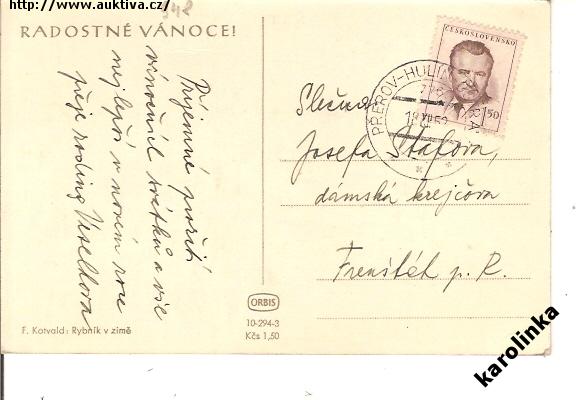 http://www.auktiva.cz/
348
RADOSTNÉ VÁNOCE!
Příjemné požití
vánočních svátků a vše
nejlepší v novém roce
přeje rodina
ČESKOSLOVENSKO
1,50
PŘEROV-HULÍN
Slečna
Josefa Štafova,
dámská krejčova
Frenštát p. R.
ORBIS
10-294-3
Kčs 1,50
F. Kotvald: Rybník v zimě
karolinka